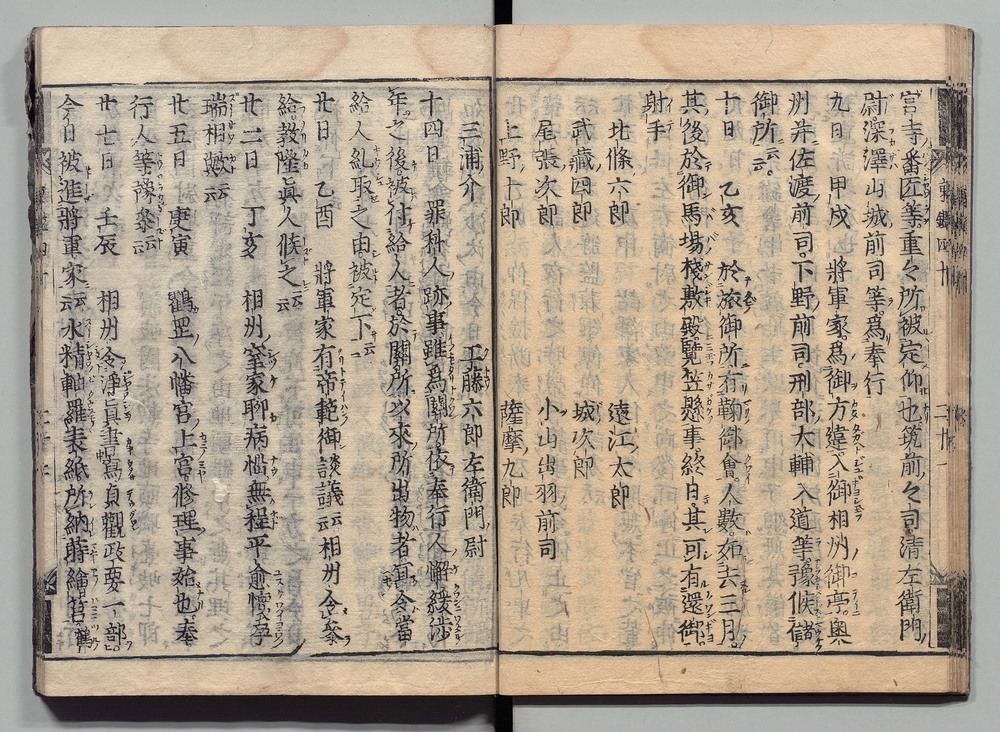 宮寺番匠等重々所被定仰也筑前々司清左衛門
尉深澤山城前司等爲奉行
九日 甲戌 將軍家爲御方違入御相州御亭奥
州并佐渡前司下野前司刑部大輔入道等豫候儲
御所云云
十日 乙亥 於旅御所有鞠御會人數如去三月
其後於御馬場棧敷殿覧笠懸事終日其可有還御
射手
北條六郎 遠江太郎
武藏四郎 城次郎
尾張次郎 小山出羽前司
上野十郎 薩摩九郎
三浦介 工藤六郎左衛門尉
十四日 罪科人跡事雖爲闕所依奉行人懈緩渉
年之後被付給人者於闕所以來所出物者何令當
給人糺取之由被定下云云
廿日 乙酉 將軍家有帝範御談議云云相州令參
給教隆眞人候之云云
廿二日 丁亥 相州室家聊病惱無程平愈懷孕
瑞相歟云云
廿五日 庚寅 鶴岡八幡宮上宮修理事始也奉
行人等豫參云云
廿七日 壬辰 相州令淨眞書寫貞觀政要一部
今日被進將軍家云云水精軸羅表紙所納蒔繪筥鶴